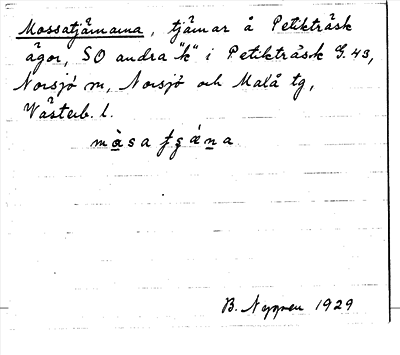 Mossatjärnarna, tjärnar å Petikträsk
ägor, SO andra "k" i Petikträsk G. 43,
Norsjö sn, Norsjö och Malå tg,
Västerb. l.
B. Nygren 1929